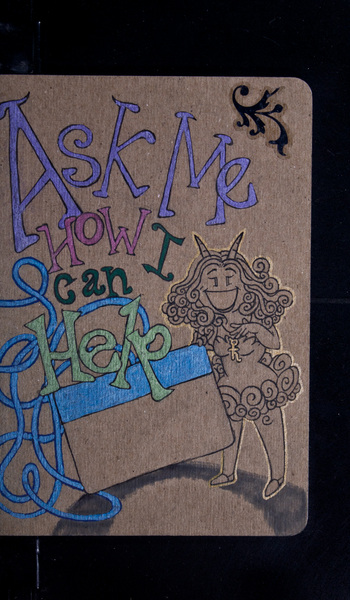 Ask Me
How I
can
Help